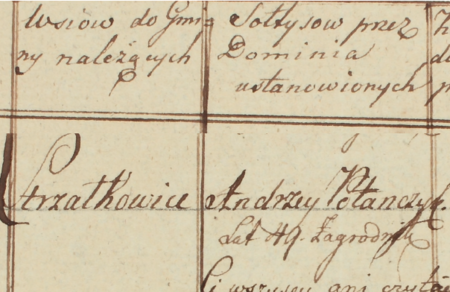 Wsiów do Gmi
ny należących
Sołtysow przez
Dominia
ustanowionych
Strzałkowice
Andrzey Potanczyk
Lat 49. Zagrodnik
Ci wszyscy ani czytać